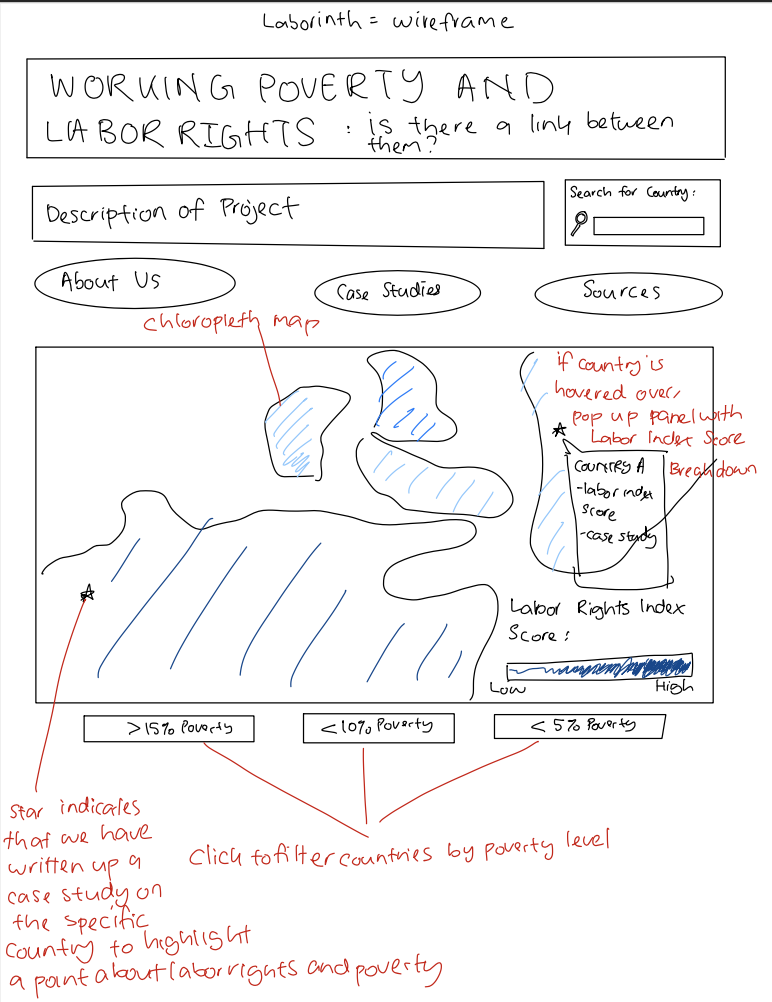 Laborinth = wireframe
WORKING POVERTY AND
LABOR RIGHTS : is there a link between
them?
Description of Project
Search for Country:
About Us
Case Studies
Sources
chloropleth map
if country is
hovered over,
pop up panel with
Labor Index Score
Breakdown
Country A
-labor index
score
-case study
Labor Rights Index
Score:
Low
High
>15% Poverty
<10% Poverty
<5% Poverty
star indicates
that we have
written up a
case study on
the specific
country to highlight
a point about labor rights and poverty
Click to filter countries by poverty level